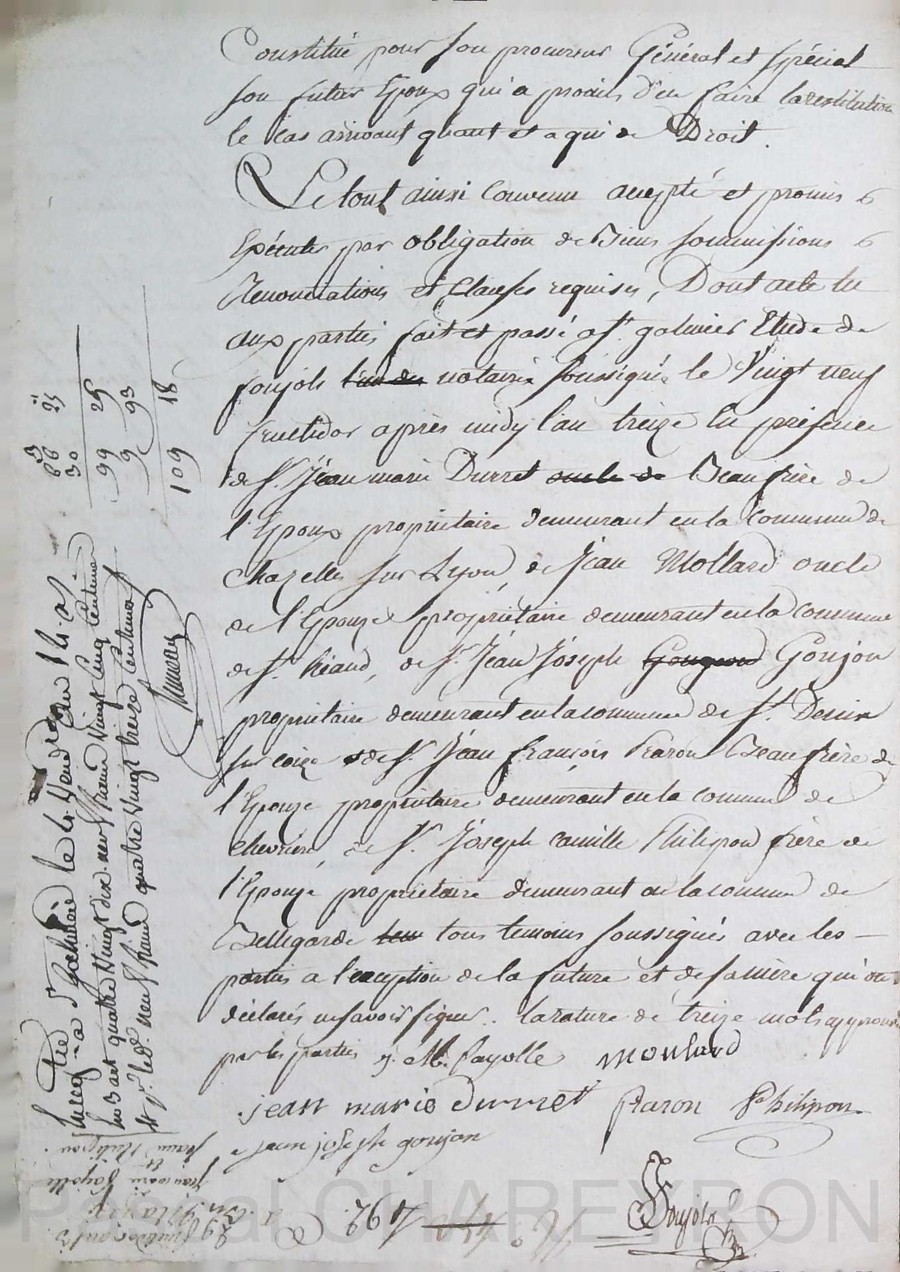 Constitué pour son procureur Général et Spécial
son futur Epoux qui a promis d'en faire la restitution
le cas arrivant quant et a qui de Droit.
Le tout ainsi Convenu accepté et promis
Exécuter par obligation de Biens soumissions
Renonciations et Clauses requises, Dont acte lu
aux parties fait et passé a St. galmier Etude de
foujols notaire soussigné le Vingt neuf
fructidor après midy l'an treize En présence
de Sr. Jean marie Durret oncle de Beau frère de
l'Epoux propriétaire demeurant en la Commune de
Chazelles sur Lyon, de Jean Mollard oncle
de l'Epouze propriétaire demeurant en la commune
de St. héand, de Sr. Jean Joseph Goujon
propriétaire demeurant en la commune de St. Denis
sur coize de Sr. Jean françois Raron Beau frère de
l'Epouze propriétaire demeurant en la commune de
chevrières de Sr. Joseph camille Philipon frère de
l'Epouze propriétaire demeurant en la commune de
Bellegarde tous temoins soussignés avec les
parties a l'exception de la future et de sa mère qui ont
déclarés ne savoir signer. la rature de treize mots approuvée
par les parties j. M. fayolle moulard
jean marie durret Raron Philipon
jean joseph goujon
Foujols
N°. 492
29 fructidor an 13
Mariage
jean marie fayolle
et
jeanne Philipon
Enregistré a St. Galmier le 4 Vend. an 14
quatre Vingt dix neuf francs Vingt Cinq Centimes
neuf francs quatre Vingt treize Centimes
99 25
9 93
109 18
Pascal CHAREYRON